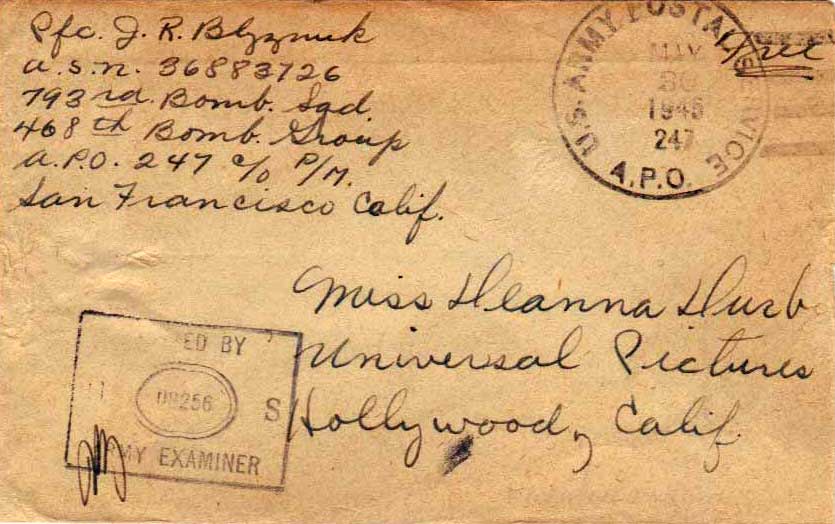 Pfc. J. R. Blyzniuk
A.S.N. 36883726
793rd Bomb. Sqd
468th Bomb. Group
A.P.O. 247 c/o P/M.
San Francisco Calif.
U.S. ARMY POSTAL SERVICE
MAY
30
1945
247
A.P.O.
Free
Miss Deanna Durb
Universal Pictures
Hollywood, Calif.
ED BY
S
ARMY EXAMINER